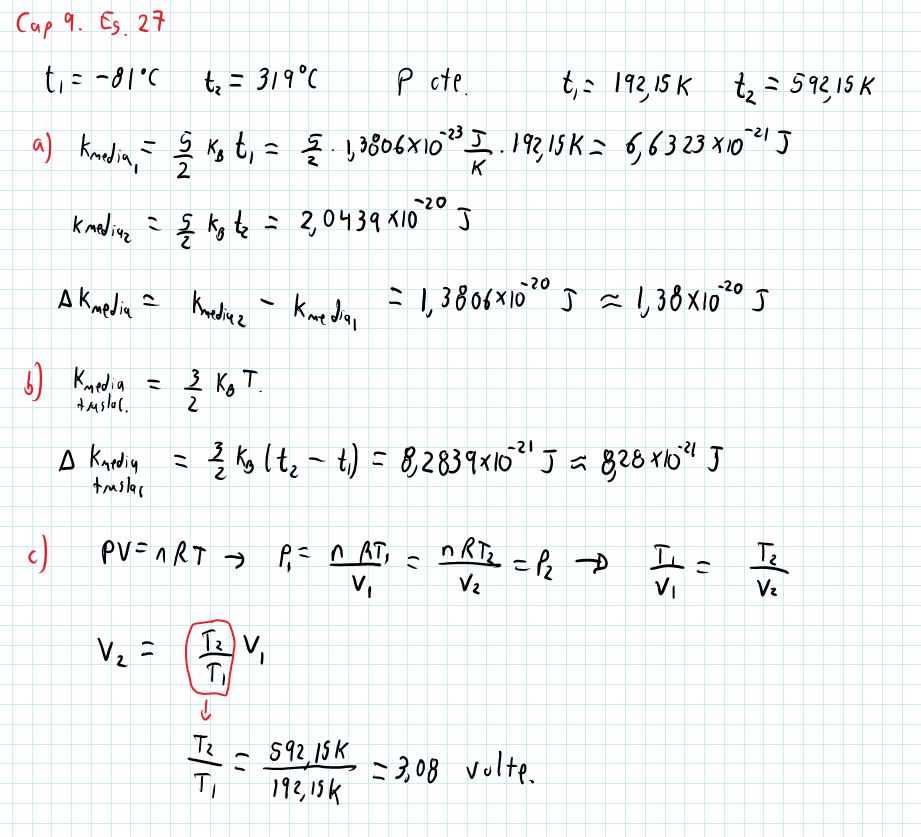 Cap 9. Es. 27
t₁ = -81°C t₂ = 319°C P cte. t₁ = 192,15K t₂ = 592,15K
a) Kmedia₁ = 5/2 K_B t₁ = 5/2 · 1,3806×10⁻²³ J/K · 192,15K = 6,6323×10⁻²¹ J
Kmedia₂ = 5/2 K_B t₂ = 2,0439×10⁻²⁰ J
ΔKmedia = Kmedia₂ - Kmedia₁ = 1,3806×10⁻²⁰ J ≈ 1,38×10⁻²⁰ J
b) Kmedia traslac. = 3/2 K_B T.
Δ Kmedia traslac = 3/2 K_B (t₂ - t₁) = 8,2839×10⁻²¹ J ≈ 8,28×10⁻²¹ J
c) PV = nRT → P₁ = n RT₁/V₁ = nRT₂/V₂ = P₂ → T₁/V₁ = T₂/V₂
V₂ = T₂/T₁ V₁
↓
T₂/T₁ = 592,15K/192,15K = 3,08 volte.